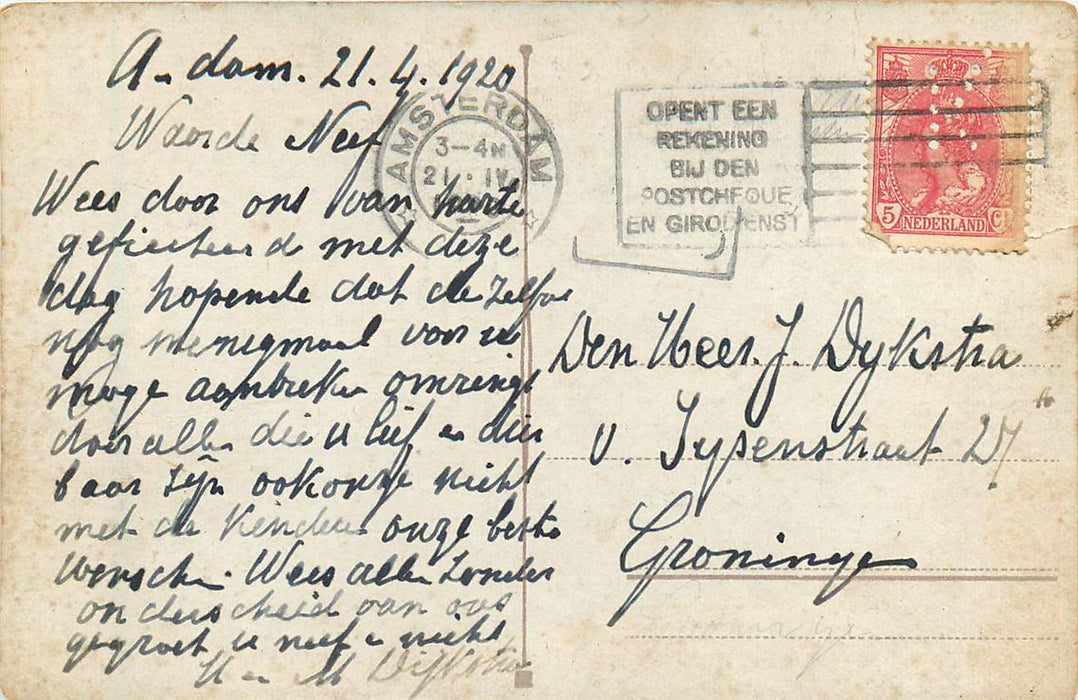 A-dam. 21.4.1920
Waarde Neef
Wees door ons van harte
gefeliciteerd met deze
dag hopende dat de zelfde
nog menigmaal voor u
moge aanbreken omringd
door allen die u lief en dier
baar zijn ook onze nicht
met de kinderen onze beste
wenschen. Wees allen zonder
onderscheid van ons
gegroet u neef en nicht
H en M Dijkstra
AMSTERDAM
3-4 N
21 IV
OPENT EEN
REKENING
BIJ DEN
POSTCHEQUE
EN GIRODIENST
5 NEDERLAND CT
Den Heer. J. Dykstra
v. Sypenstraat 27
Groningen